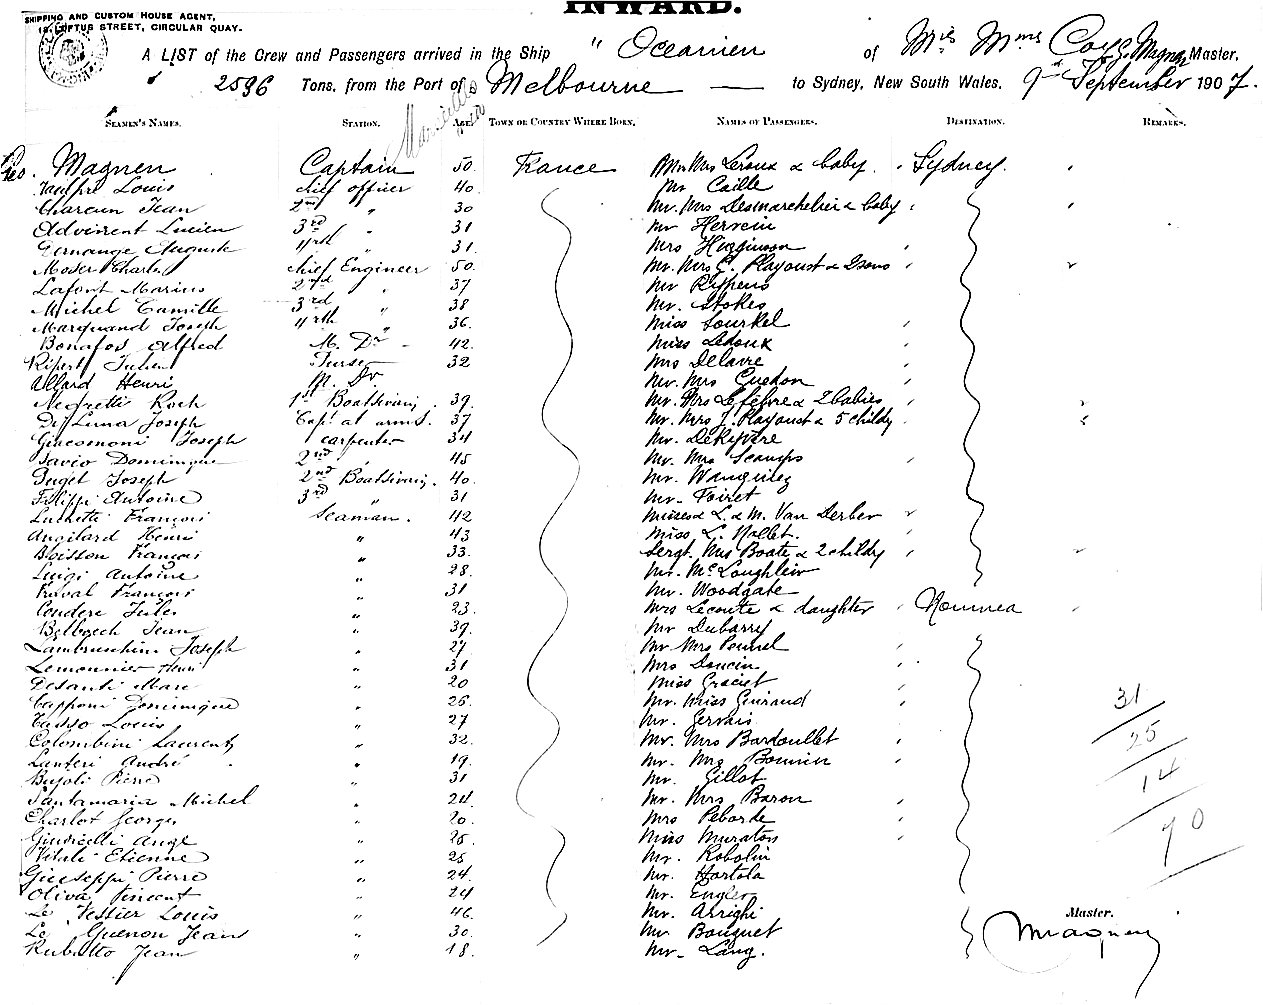 INWARD.
SHIPPING AND CUSTOM HOUSE AGENT,
LOFTUS STREET, CIRCULAR QUAY.
A LIST of the Crew and Passengers arrived in the Ship " Oceanien of Mrs Mms Coys G. Magnen Master,
2596 Tons, from the Port of Melbourne — to Sydney, New South Wales, 9 September 1907.
SEAMEN'S NAMES. STATION. AGE. TOWN OR COUNTRY WHERE BORN, NAMES OF PASSENGERS. DESTINATION. REMARKS.
Geo. Magnen Captain 50. France Mr Mrs Leroux & baby. Sydney.
Louis chief officer 40. Mr Caille
Charcun Jean 2nd " 30 Mr. Mrs Desmarchelier & baby
Advinent Lucien 3rd " 31 Mr Hervein
Gernange Auguste 4rth " 31. Mrs Higginson
Moser Charles chief Engineer 50. Mr. Mrs G. Playoust & 2 sons
Lafont Marius 2nd " 37 Mr Rippens
Michel Camille 3rd " 38 Mr. Stokes
Marquand Joseph 4rth " 36. Miss Sourkel
Bonafos Alfred M. Dr - 42. Miss Ledoux
Ripert Julien Purser 32 Mrs Delavre
Allard Henri M. Dr Mr. Mrs Guedon
Negretti Roch 1st Boatswain. 39. Mr. Mrs Lefebvre & 2 babies
De Luna Joseph Capt at arms. 37 Mr. Mrs J. Playoust & 5 childn
Giacomoni Joseph carpenter 34 Mr.
Savio Dominique 2nd " 45 Mr. Mrs Scamps
Puget Joseph 2nd Boatswain. 40. Mr.
Filippi Antoine 3rd " 31 Mr. Foiret
Luchetti François Seaman. 42 Misses L. & M. Van Derber
Angilard Henri " 43 Miss L. Nollet.
Boisson François " 33. Sergt. Mrs Boate & 2 childn
Luigi Antoine " 28. Mr. McLoughlein
Traval François " 31 Mr. Woodgate
Condere Jules " 23. Mrs Leconte & daughter Noumea
Belboech Jean " 39. Mr Dubarry
Lambruschini Joseph " 27. Mr Mrs Pournel
Lemonnier Henri " 31 Mrs Doucin
Desanti Marc " 20 Miss Graciet
Capponi Dominique " 26. Mr. Miss Guiraud
Tasso Louis " 27 Mr. Gervais
Colombini Laurent " 32. Mr. Mrs Bardoullet
Lanteri André " 19. Mr. Mrs Bonnin
Bujoli Pierre " 31 Mr. Gillot
Santamaria Michel " 24. Mr. Mrs Baron
Charlot Georges " 20. Mrs Peborde
Giudicelli Ange " 25. Miss Muraton
Vitali Etienne " 25 Mr. Robolin
Giuseppi Pierre " 24. Mr. Hartola
Oliva Vincent " 24 Mr. Engler
Le Vestier Louis " 46. Mr. Arrighi
Le Guenon Jean " 30. Mr. Bouquet
Rubatto Jean " 18. Mr. Lang.
31
25
14
70
Master.
Magnen